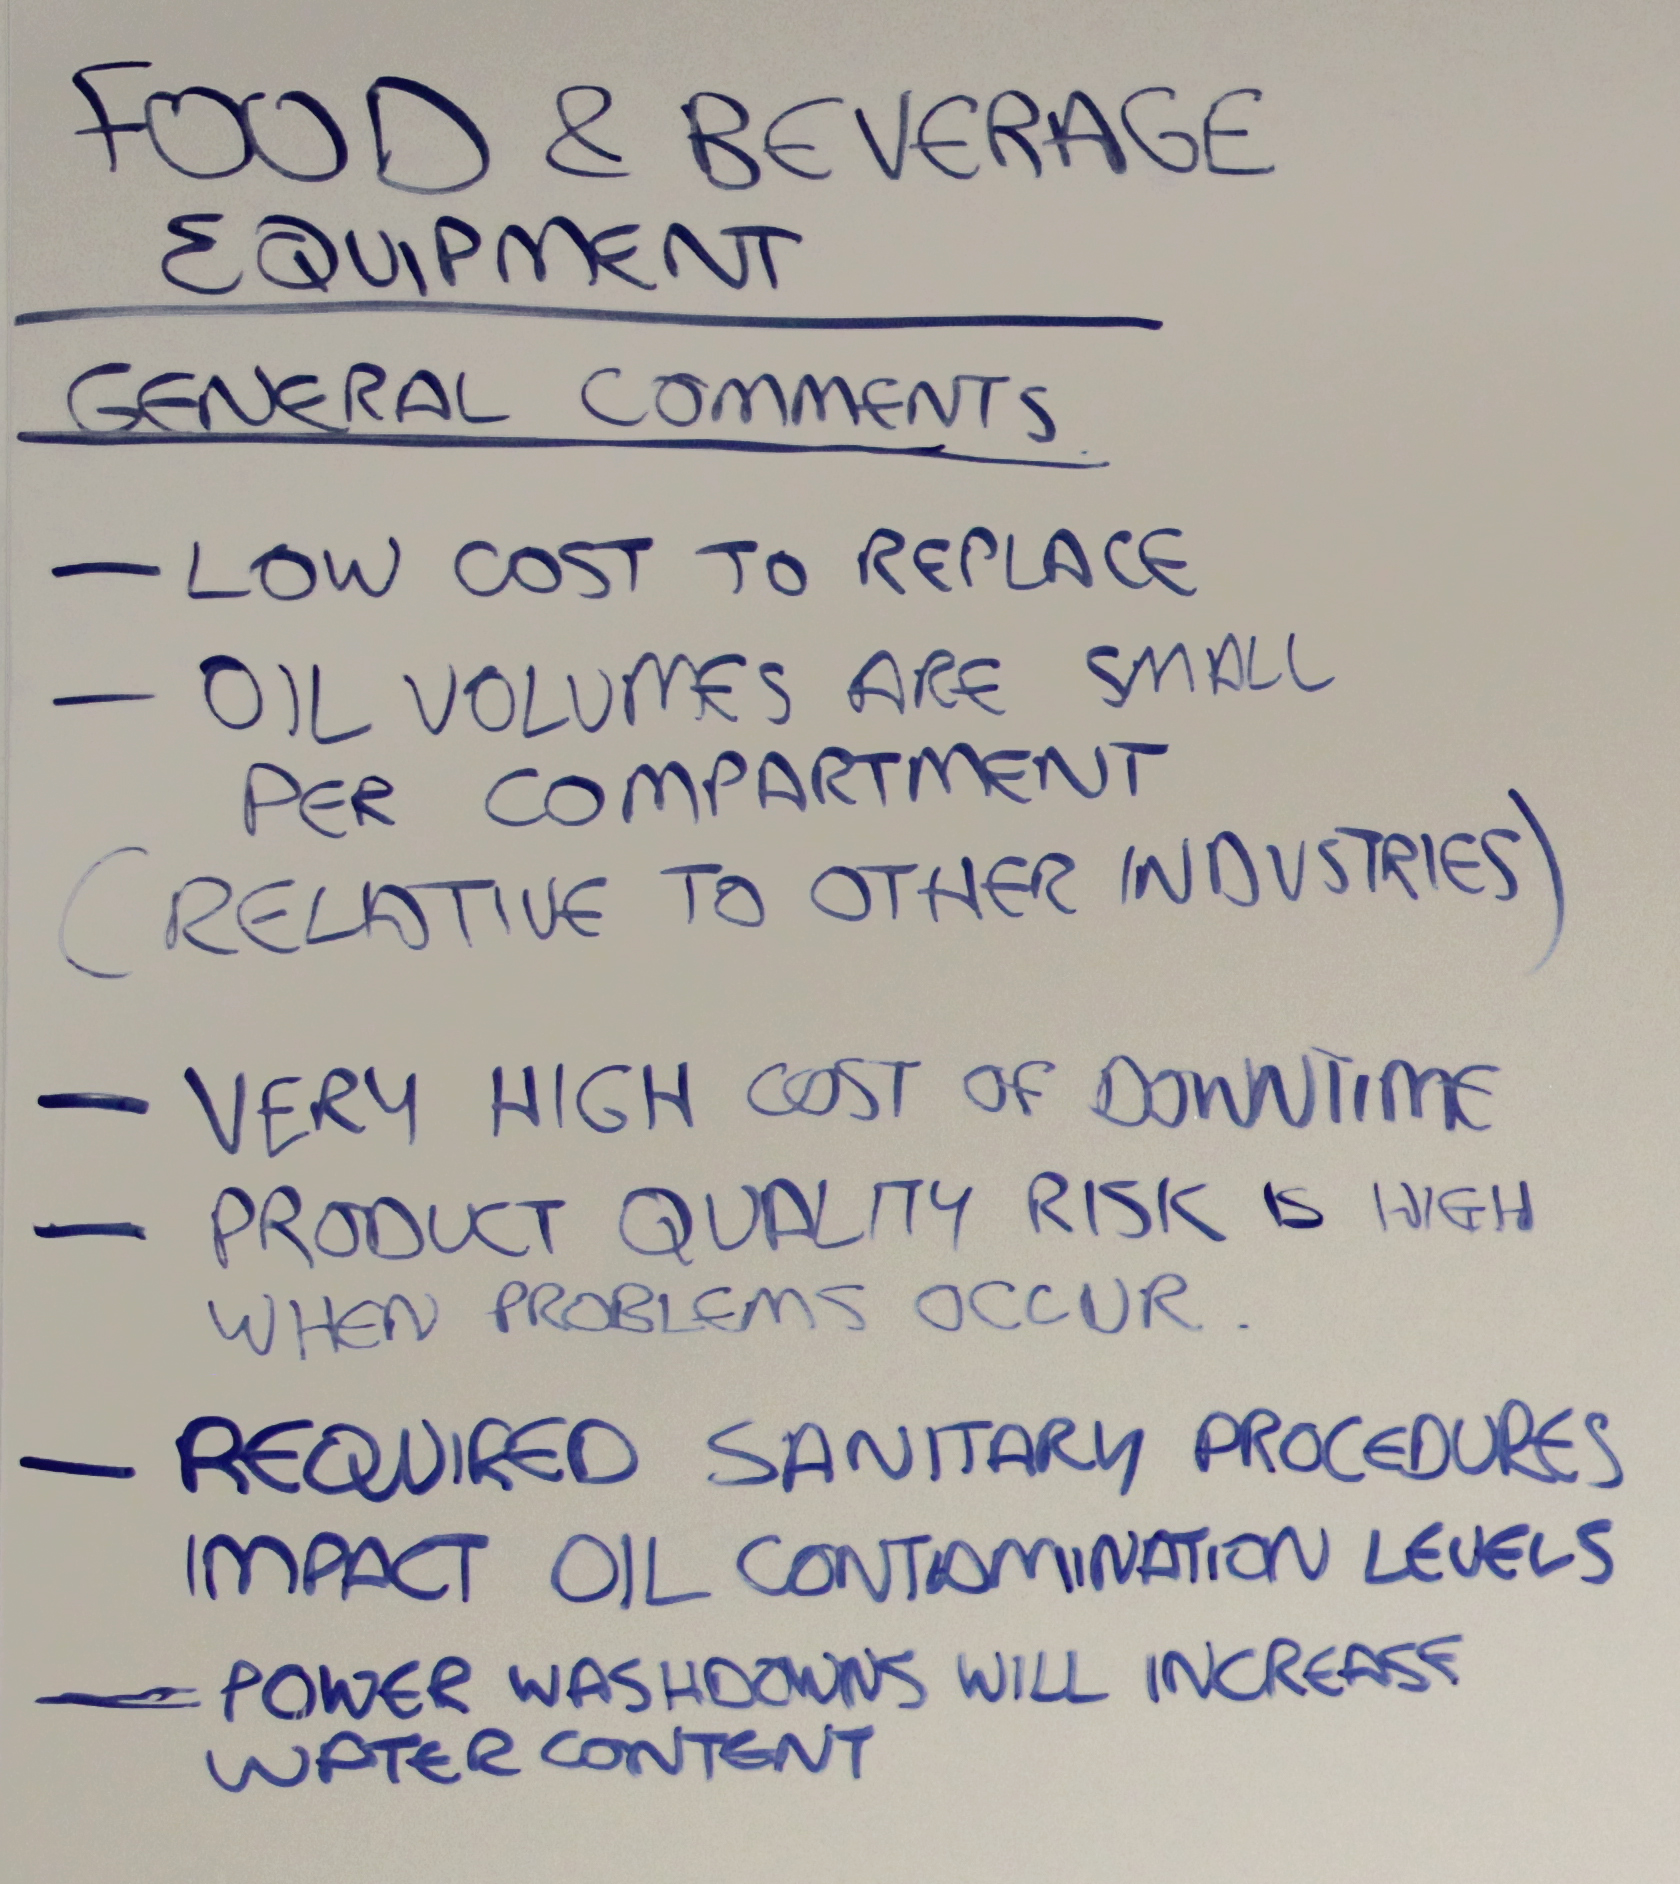 FOOD & BEVERAGE
EQUIPMENT
GENERAL COMMENTS
— LOW COST TO REPLACE
— OIL VOLUMES ARE SMALL
PER COMPARTMENT
(RELATIVE TO OTHER INDUSTRIES)
— VERY HIGH COST OF DOWNTIME
— PRODUCT QUALITY RISK IS HIGH
WHEN PROBLEMS OCCUR.
— REQUIRED SANITARY PROCEDURES
IMPACT OIL CONTAMINATION LEVELS
— POWER WASHDOWNS WILL INCREASE
WATER CONTENT